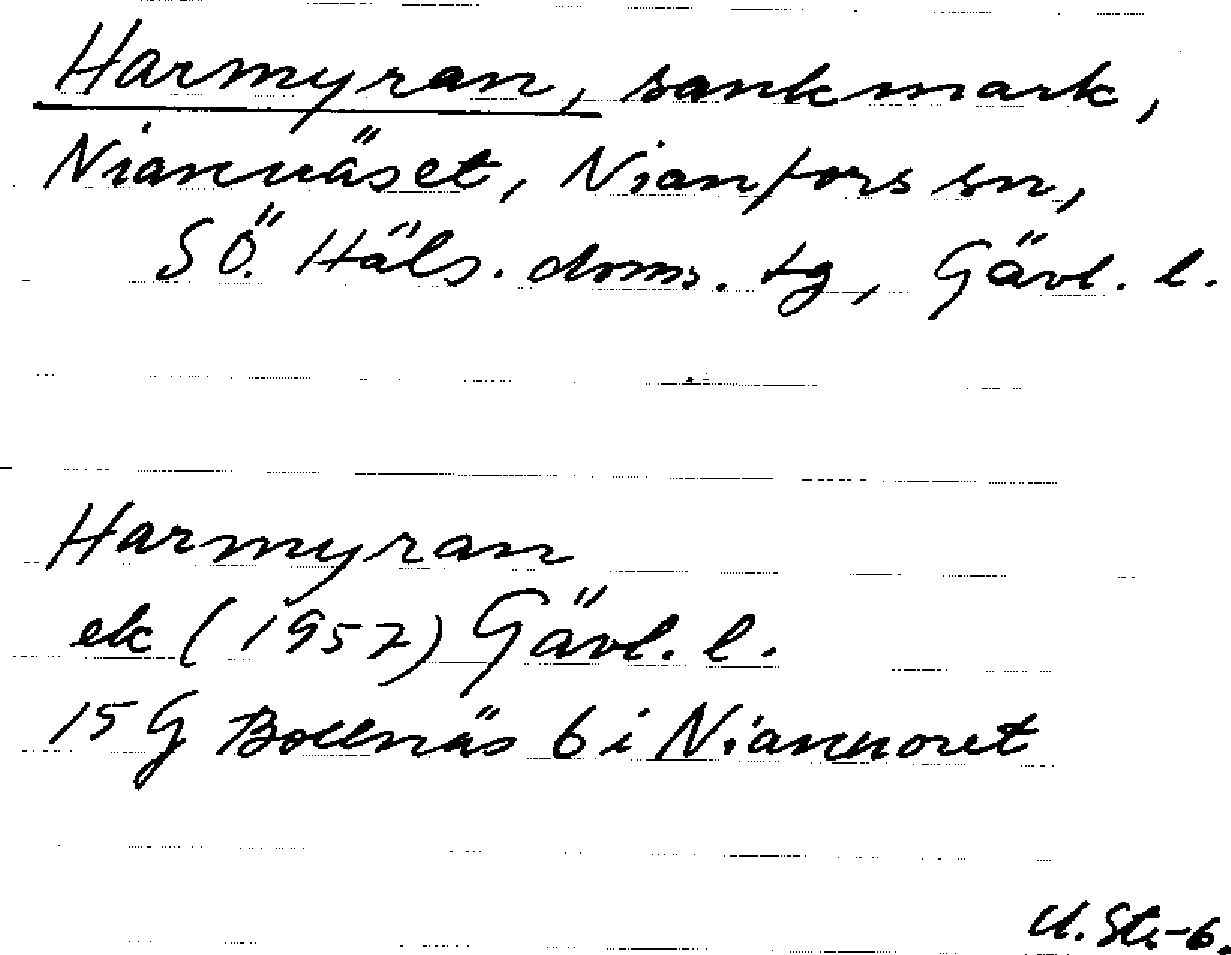 Harmyran, sankmark,
Niannäset, Nianfors sn,
SÖ. Häls. doms. tg, Gävl. l.
Harmyran
ek (1957) Gävl. l.
15 G Bollnäs 6 i Niannoret